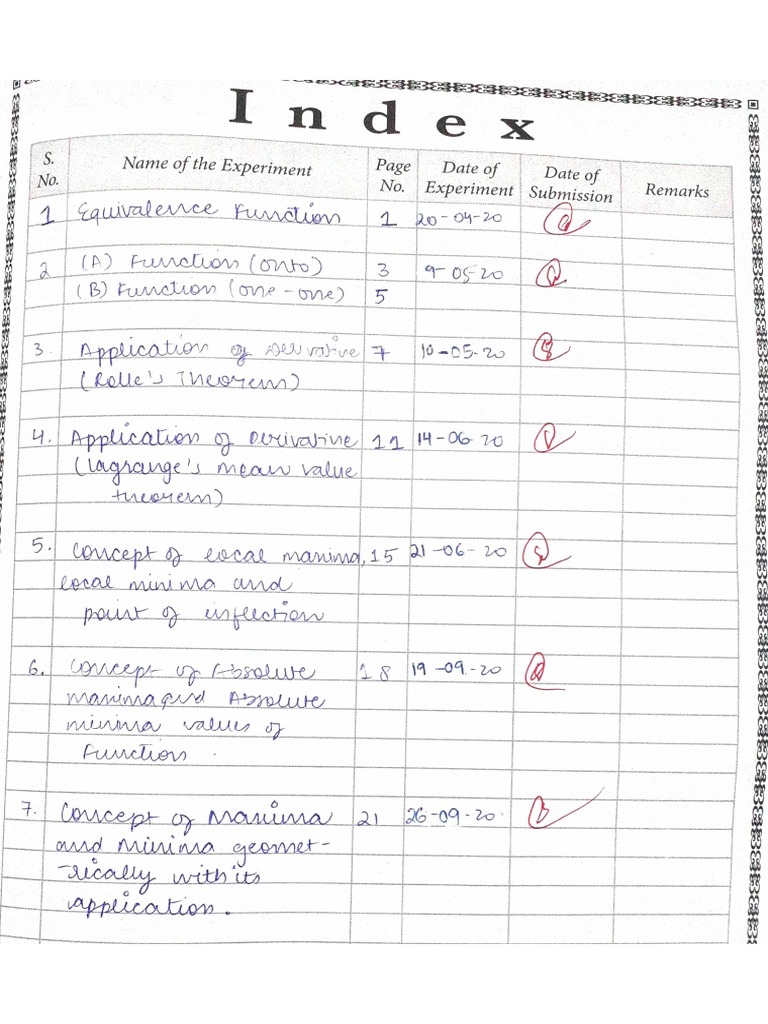 Index
S. No. Name of the Experiment Page No. Date of Experiment Date of Submission Remarks
1 Equivalence Function 1 20-04-20
2 (A) Function (onto) 3 9-05-20
(B) Function (one-one) 5
3. Application of Derivative 7 10-05-20
(Rolle's Theorem)
4. Application of Derivative 11 14-06-20
(Lagrange's mean value
theorem)
5. Concept of local maxima, 15 21-06-20
local minima and
point of inflection
6. Concept of Absolute 18 19-09-20
maxima and Absolute
minima values of
Function.
7. Concept of Maxima 21 26-09-20
and Minima geomet-
-rically with its
application.